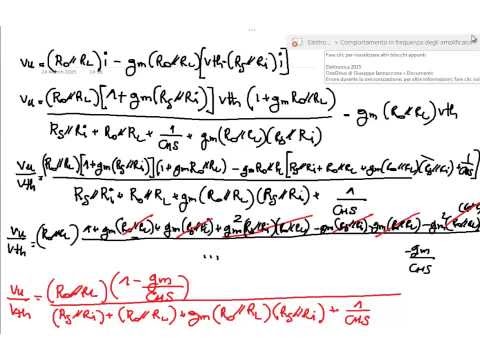 Elettro... > Comportamento in frequenza degli amplificatori
Fare clic per visualizzare altri blocchi appunti
Elettronica 2015
OneDrive di Giuseppe Iannaccone > Documenti
vu = (Ro//RL) i - gm (Ro//RL) [vth - (Rs//Ri) i]
vu = (Ro//RL) [1 + gm (Rs//Ri)] vth (1 + gm Ro//RL) / Rs//Ri + Ro//RL + 1/CHS + gm (Ro//RL) (Rs//Ri) - gm (Ro//RL) vth
vu/vth = (Ro//RL) [1 + gm (Rs//Ri)] (1 + gm Ro//RL) - gm Ro//RL [Rs//Ri + Ro//RL + gm (Ro//RL) (Rs//Ri) + 1/CHS] / Rs//Ri + Ro//RL + gm (Ro//RL) (Rs//Ri) + 1/CHS
vu/vth = (Ro//RL) 1 + gm (Ro//RL) + gm (Rs//Ri) + gm² (Rs//Ri) (Ro//RL) - gm (Rs//Ri) - gm (Ro//RL) - gm² (Ro//RL) - gm/CHS / ...
vu/vth = (Ro//RL) (1 - gm/CHS) / (Rs//Ri) + (Ro//RL) + gm (Ro//RL) (Rs//Ri) + 1/CHS